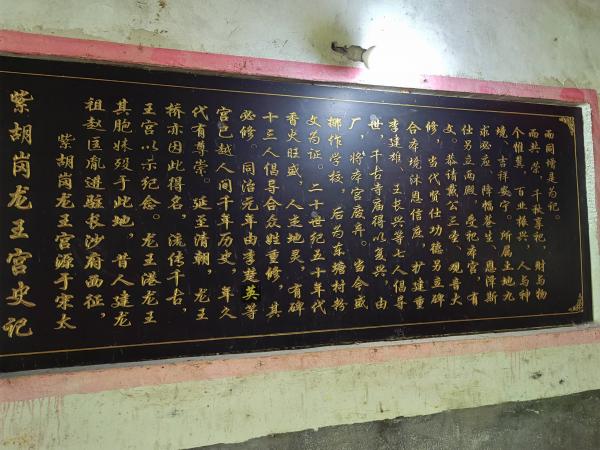 紫胡岗龙王宫史记
紫胡岗龙王宫源于宋太
祖赵匡胤道驻长沙府西征，
其胞妹殁于此地，昔人建龙
王宫以示纪念。龙王港龙王
桥亦因此得名，流传千古，
代有尊崇。延至清朝，龙王
宫已越人间千年历史，年久
必修。同治元年由李楚英等
十三人倡导合众姓重修，其
香火旺盛，人杰地灵，有碑
文为证。二十世纪五十年代
挪作学校，后为东塘村粉
厂，将本宫废弃。当今盛
世，千古寺庙得以复兴，由
李建雄、王长兴等七人倡导
合本境沐恩信众，扩建重
修，当代贤仕功德另立碑
文。恭请戴公三圣、观音大
仕另立两殿，受祀本宫，有
求必应，降福苍生、恩泽斯
境，吉祥安宁。所属土地九
个惟集，百业振兴，人与神
而共荣，千秋享祀，财与物
而同增是为记。